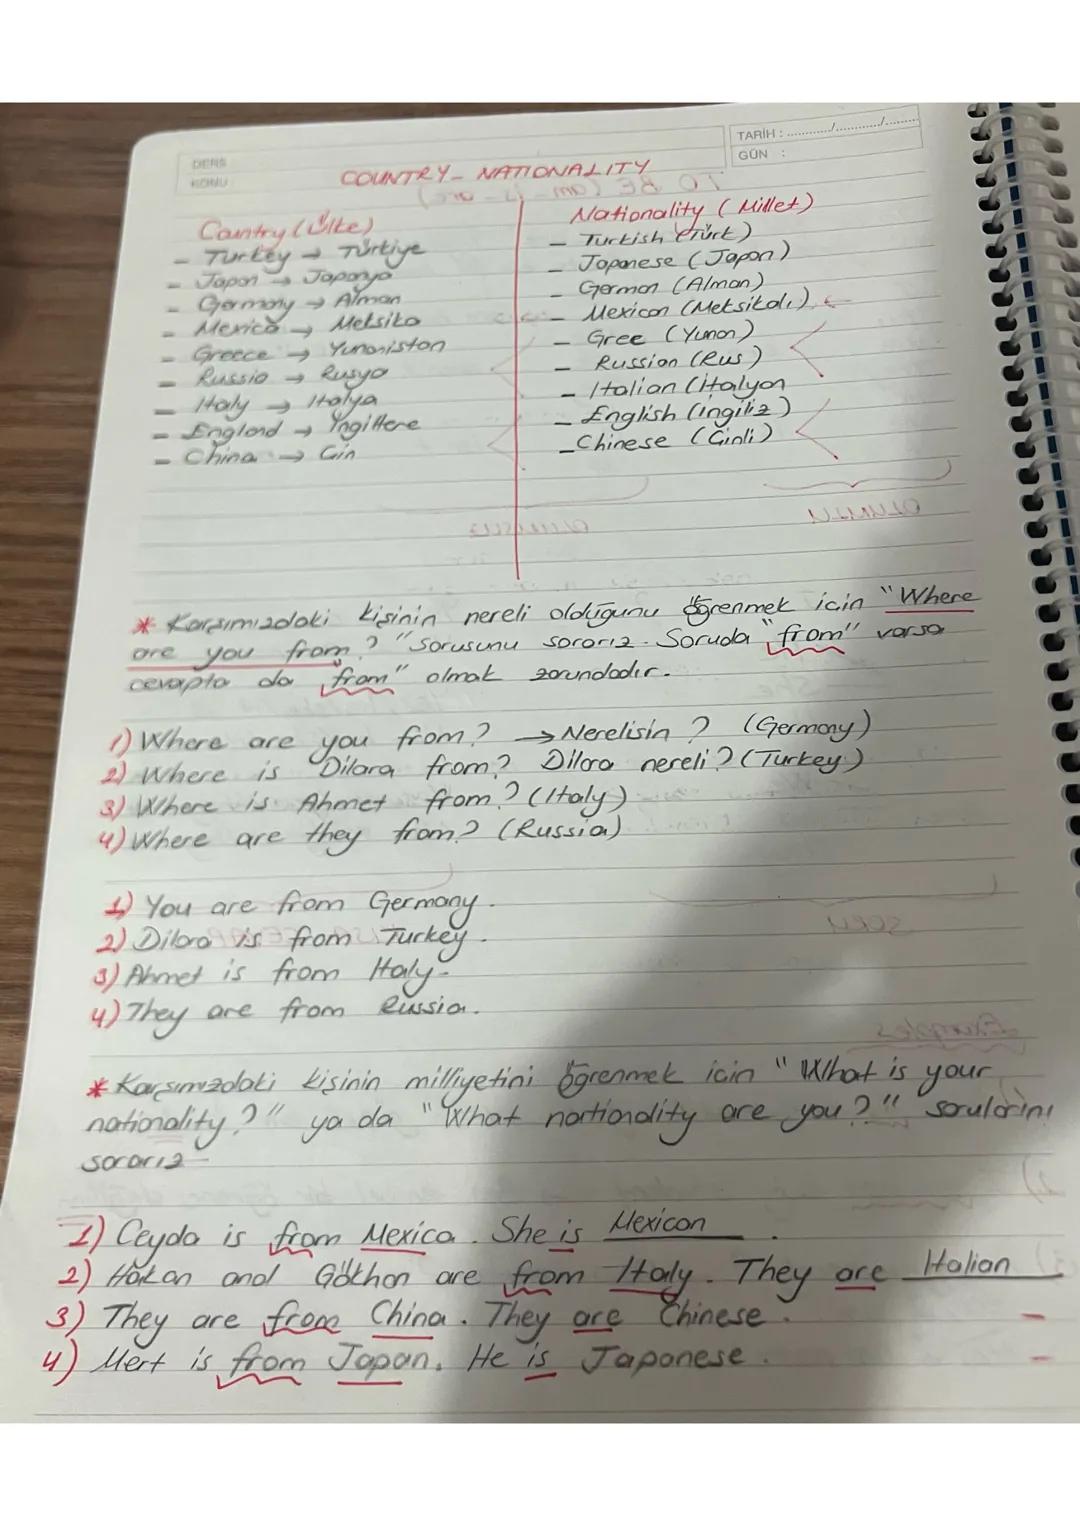 DERS
KONU
TARİH : ............/............/............
GÜN :
COUNTRY - NATIONALITY
Country (Ülke)
- Turkey → Türkiye
- Japon → Japonya
- Germany → Alman
- Mexica → Meksika
- Greece → Yunanistan
- Russia → Rusya
- Italy → Italya
- England → İngiltere
- China → Çin
Nationality (Millet)
- Turkish (Türk)
- Japanese (Japon)
- German (Alman)
- Mexican (Meksikalı)
- Gree (Yunan)
- Russian (Rus)
- Italian (İtalyan
- English (İngiliz)
- Chinese (Çinli)
* Karşımızdaki kişinin nereli olduğunu öğrenmek için "Where
are you from?" Sorusunu sorarız. Soruda "from" varsa
cevapta da "from" olmak zorundadır.
1) Where are you from? → Nerelisin? (Germany)
2) Where is Dilara from? Dilara nereli? (Turkey)
3) Where is Ahmet from? (Italy)
4) Where are they from? (Russia)
1) You are from Germany.
2) Dilara is from Turkey.
3) Ahmet is from Italy.
4) They are from Russia.
* Karşımızdaki kişinin milliyetini öğrenmek için "What is your
nationality?" ya da "What nationality are you?" sorularını
sorarız
1) Ceyda is from Mexica. She is Mexican.
2) Hakan and Gökhan are from Italy. They are Italian
3) They are from China. They are Chinese.
4) Mert is from Japan. He is Japanese.